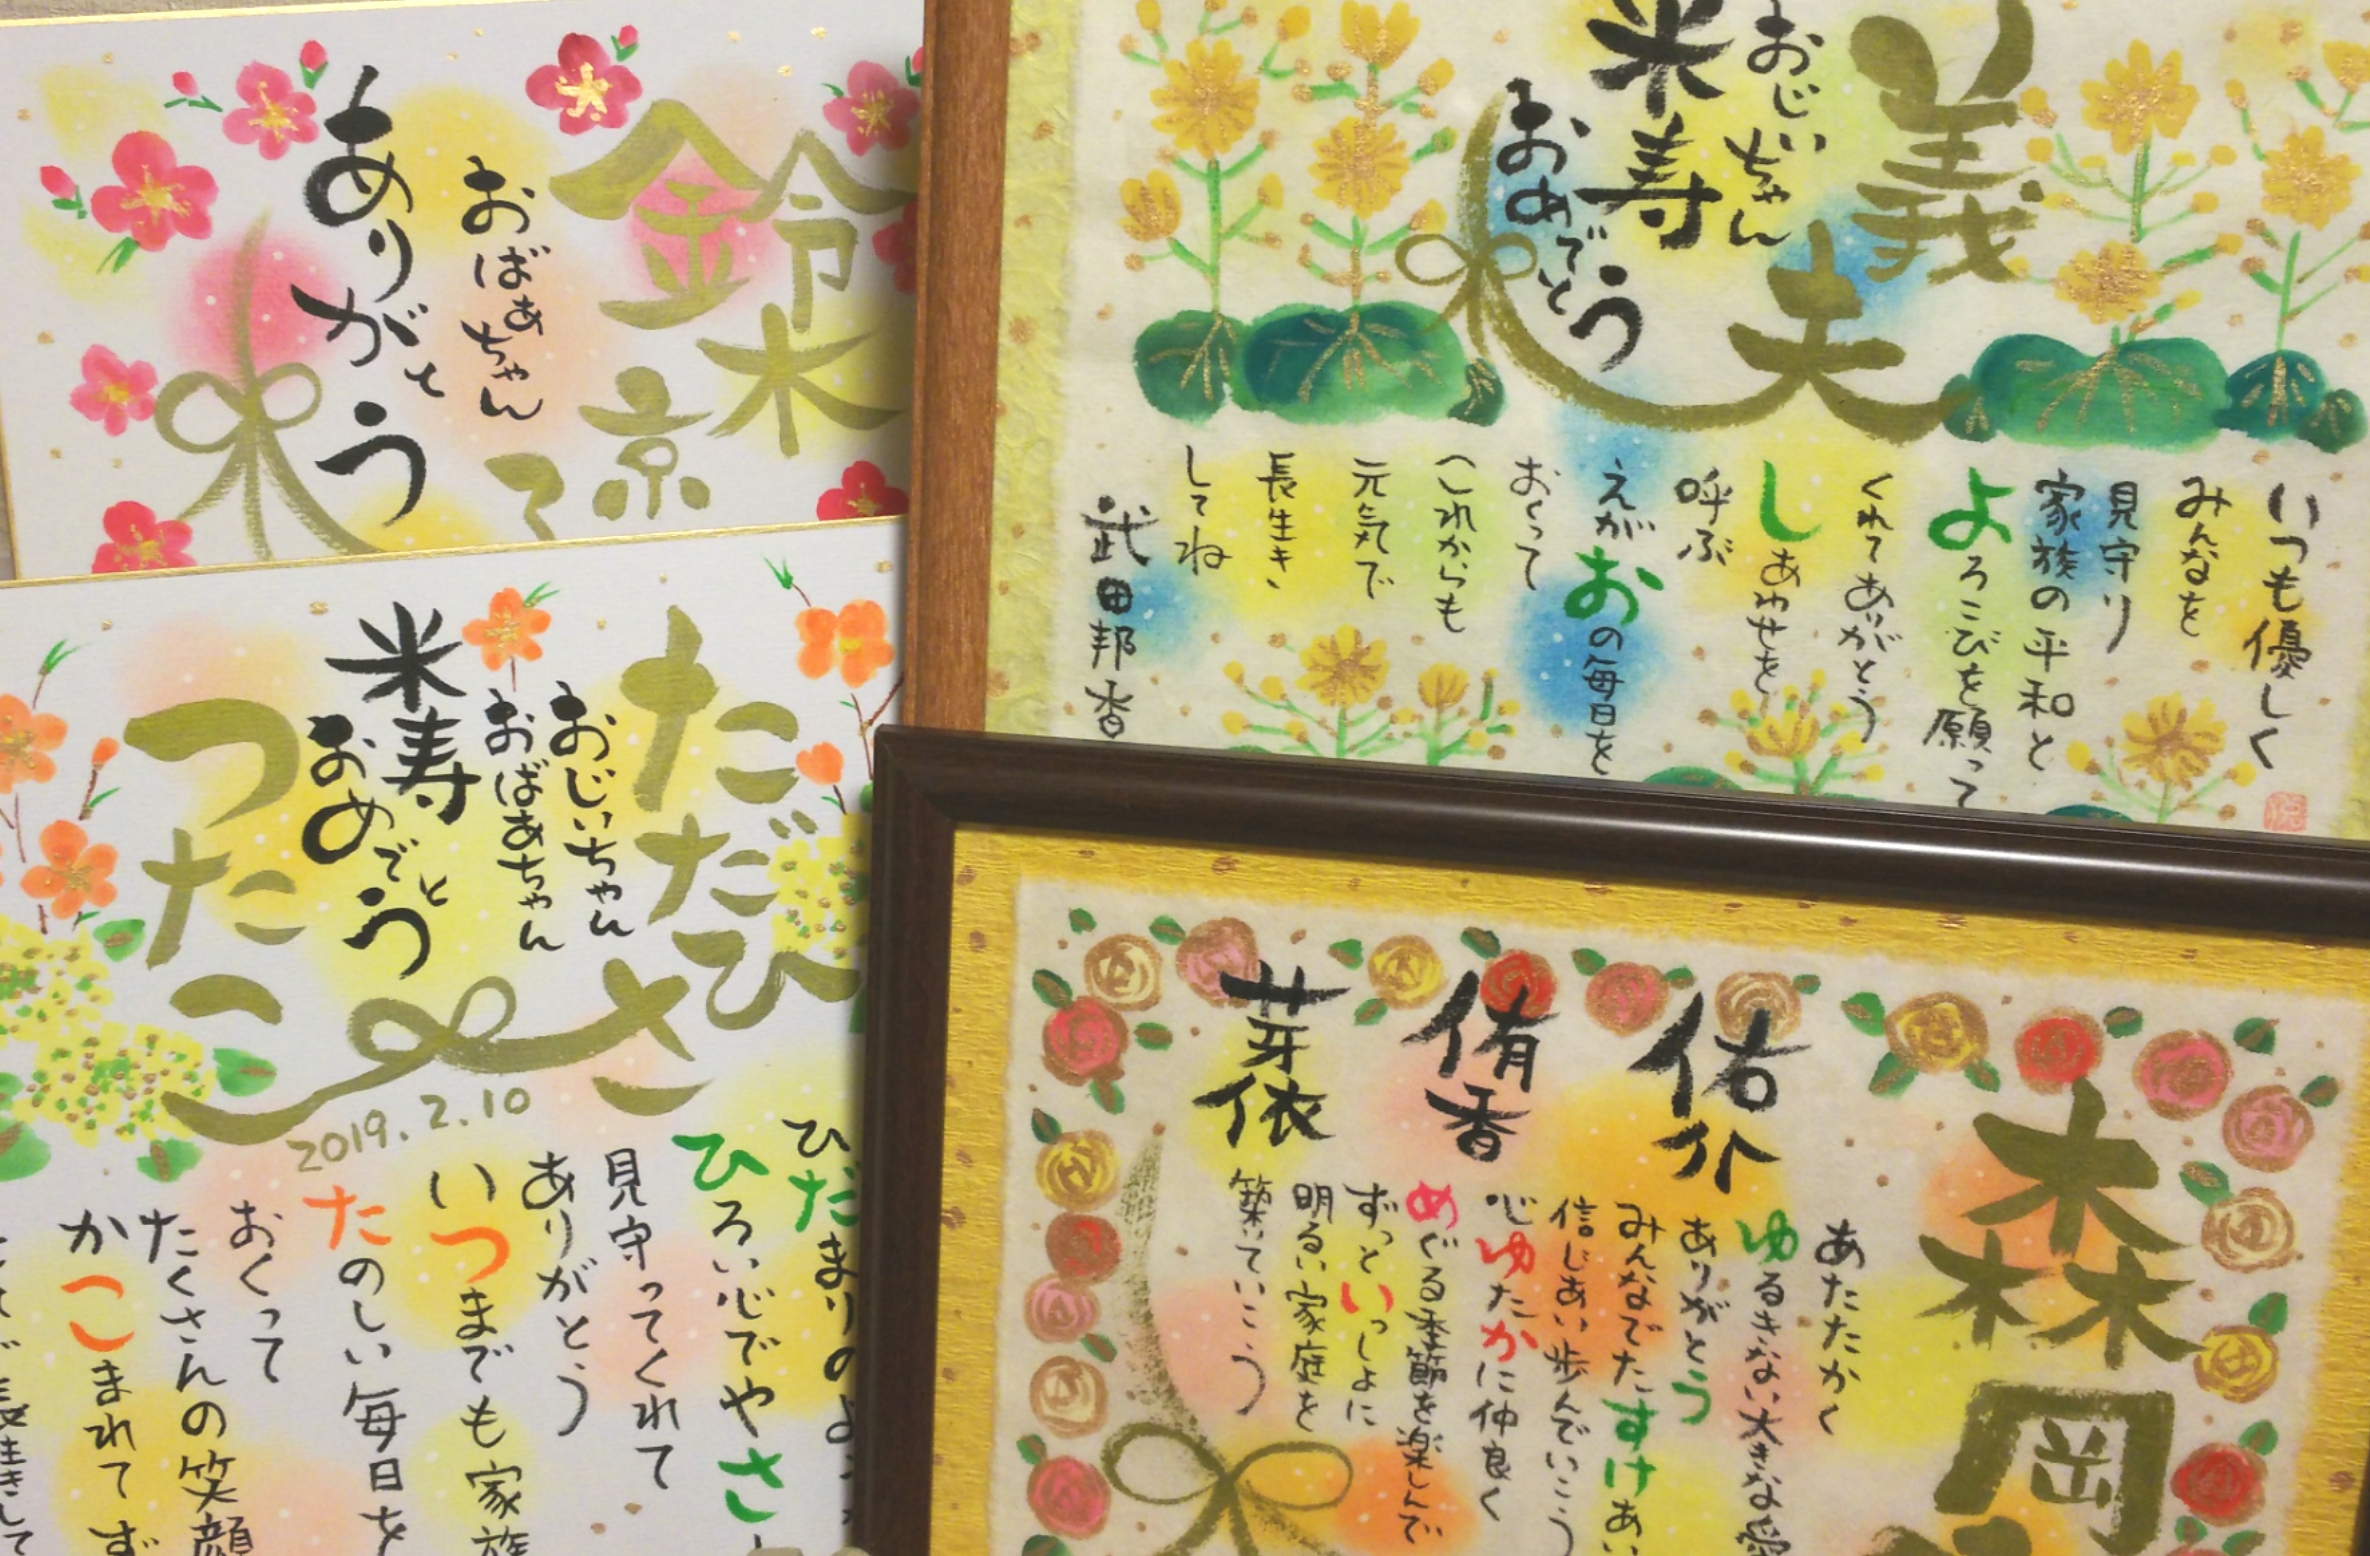 鈴木
京
おばぁちゃん
ありがとう
義夫
おじぃちゃん
米寿
おめでとう
いつも優しく
みんなを
見守り
家族の平和と
よろこびを願って
くれてありがとう
しあわせを
呼ぶ
えがおの毎日を
おくって
これからも
元気で
長生き
してね
武田邦香
ただひさこ
つたこ
おじぃちゃん
おばあちゃん
米寿
おめでとう
2019.2.10
ひだまりのよ
ひろい心でやさ
見守ってくれて
ありがとう
いつまでも家族
たのしい毎日を
おくって
たくさんの笑顔
かこまれてず
長生きして
森岡
佑介
侑香
芽依
あたたかく
ゆるぎない大きな愛
ありがとう
みんなでたすけあい
信じあい歩んでいこう
心ゆたかに仲良く
めぐる季節を楽しんで
ずっといっしょに
明るい家庭を
築いていこう